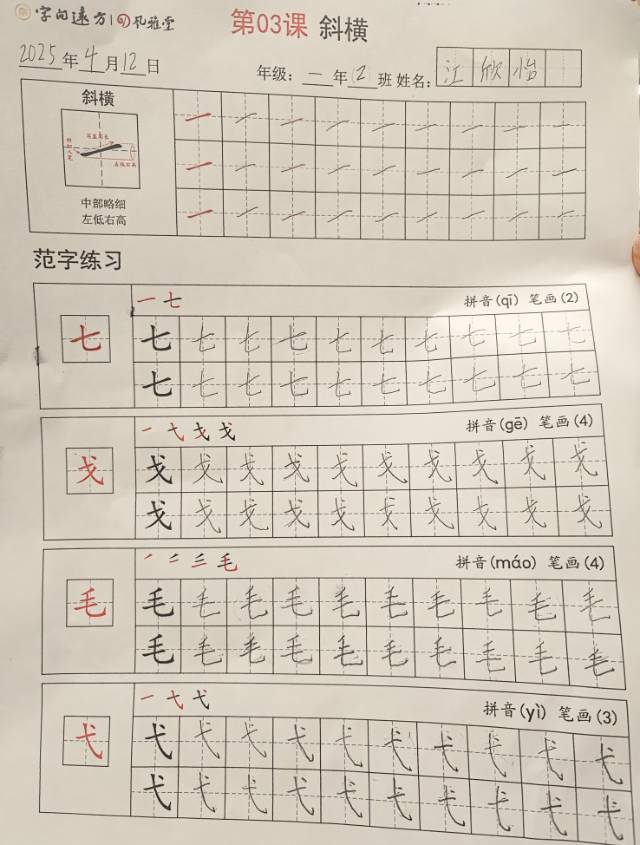 字向远方 风雅堂
第03课 斜横
2025年4月12日
年级：一年2班 姓名：江欣怡
斜横
中部略细
左低右高
范字练习
一 七
拼音(qī) 笔画(2)
七 七 七 七 七 七 七 七 七 七 七
七 七 七 七 七 七 七 七 七 七
一 弋 戈 戈
拼音(gē) 笔画(4)
戈 戈 戈 戈 戈 戈 戈 戈 戈 戈 戈
戈 戈 戈 戈 戈 戈 戈 戈 戈 戈
毛
拼音(máo) 笔画(4)
毛 毛 毛 毛 毛 毛 毛 毛 毛 毛 毛
毛 毛 毛 毛 毛 毛 毛 毛 毛 毛
一 弋 弋
拼音(yì) 笔画(3)
弋 弋 弋 弋 弋 弋 弋 弋 弋 弋 弋
弋 弋 弋 弋 弋 弋 弋 弋 弋 弋